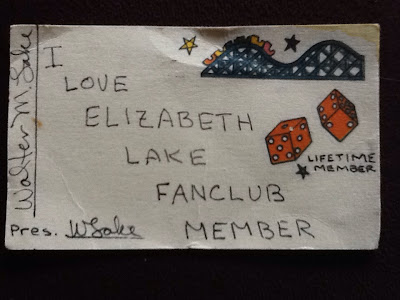 Walter M. Lake
I
LOVE
ELIZABETH
LAKE
FANCLUB
MEMBER
LIFETIME
MEMBER
Pres. W Lake